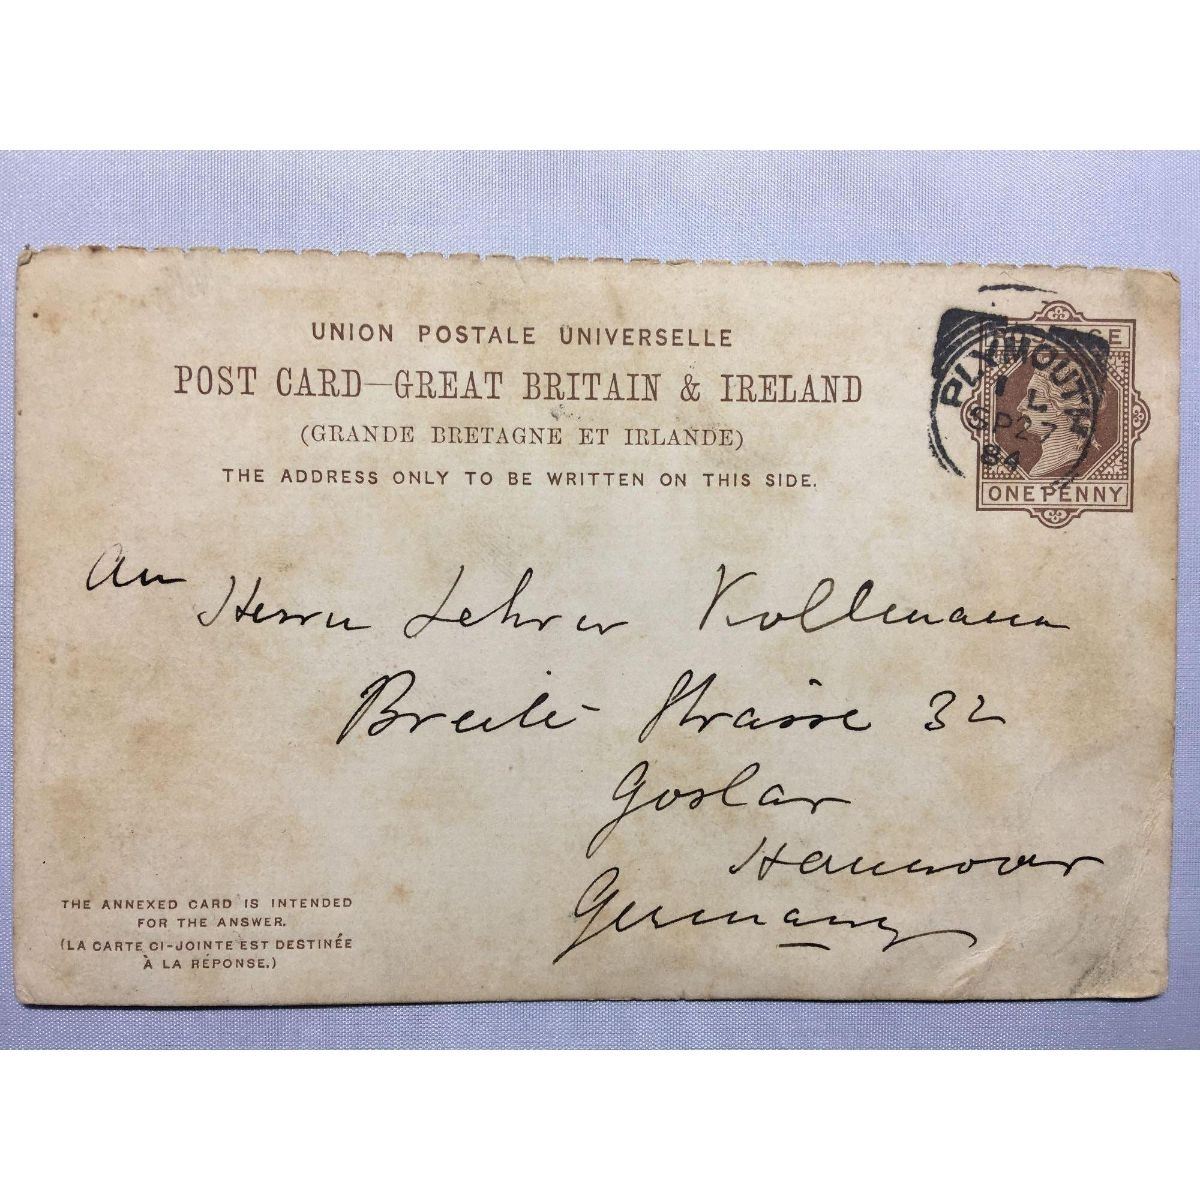 UNION POSTALE UNIVERSELLE
POST CARD—GREAT BRITAIN & IRELAND
(GRANDE BRETAGNE ET IRLANDE)
THE ADDRESS ONLY TO BE WRITTEN ON THIS SIDE.
PLYMOUTH
L
SP27
84
ONE PENNY
An
Herrn Lehrer Kollmann
Breite Strasse 32
Goslar
Hannover
Germany
THE ANNEXED CARD IS INTENDED
FOR THE ANSWER.
(LA CARTE CI-JOINTE EST DESTINÉE
À LA RÉPONSE.)